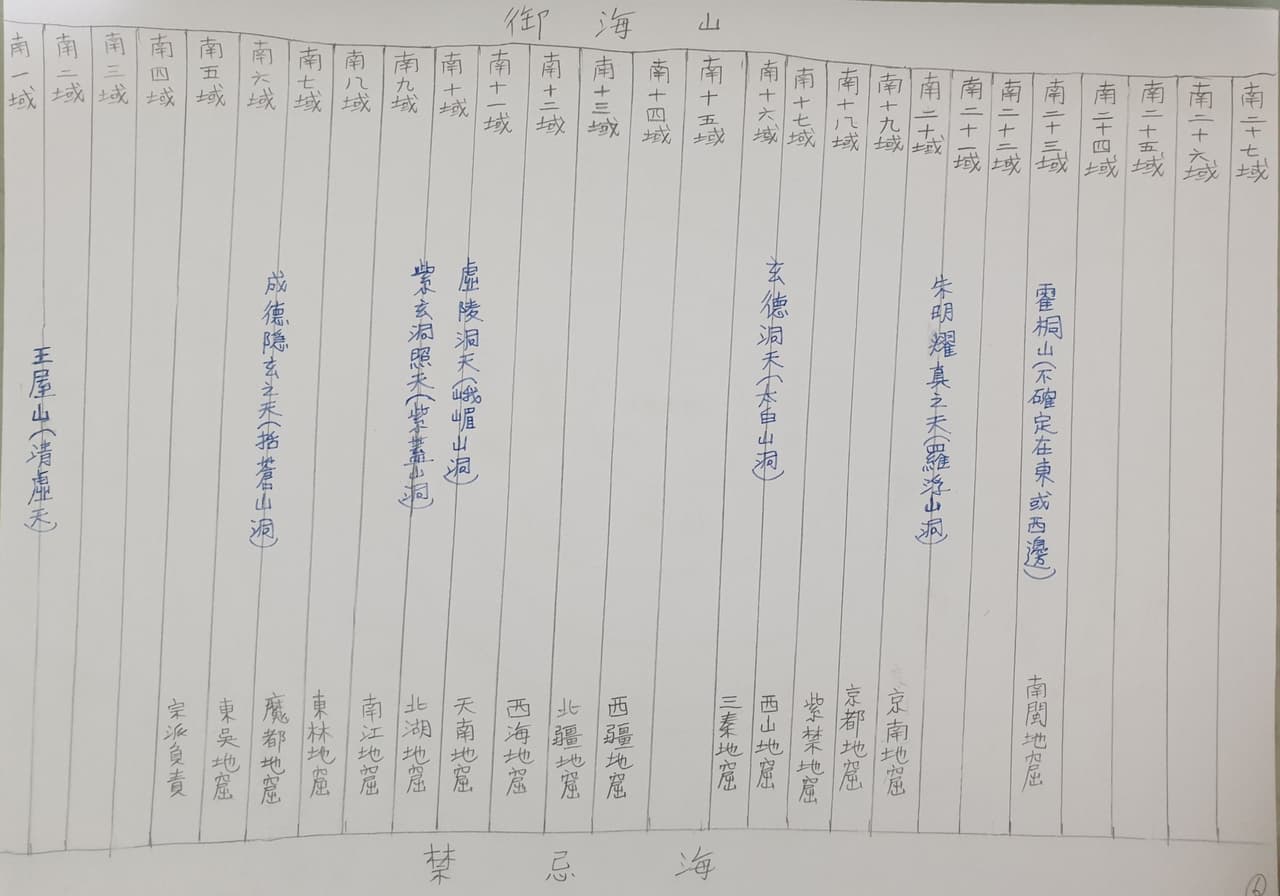 御海山
南一域
南二域
南三域
南四域
南五域
南六域
南七域
南八域
南九域
南十域
南十一域
南十二域
南十三域
南十四域
南十五域
南十六域
南十七域
南十八域
南十九域
南二十域
南二十一域
南二十二域
南二十三域
南二十四域
南二十五域
南二十六域
南二十七域
王屋山(清虛天)
成德隐玄之天(括蒼山洞)
紫玄洞照天(紫蓋山洞)
虛陵洞天(峨嵋山洞)
玄德洞天(太白山洞)
朱明耀真之天(羅浮山洞)
霍桐山(不確定在東或西邊)
宗派負責
東吳地窟
魔都地窟
東林地窟
南江地窟
北湖地窟
天南地窟
西海地窟
北疆地窟
西疆地窟
三秦地窟
西山地窟
紫禁地窟
京都地窟
京南地窟
南閩地窟
禁忌海
6